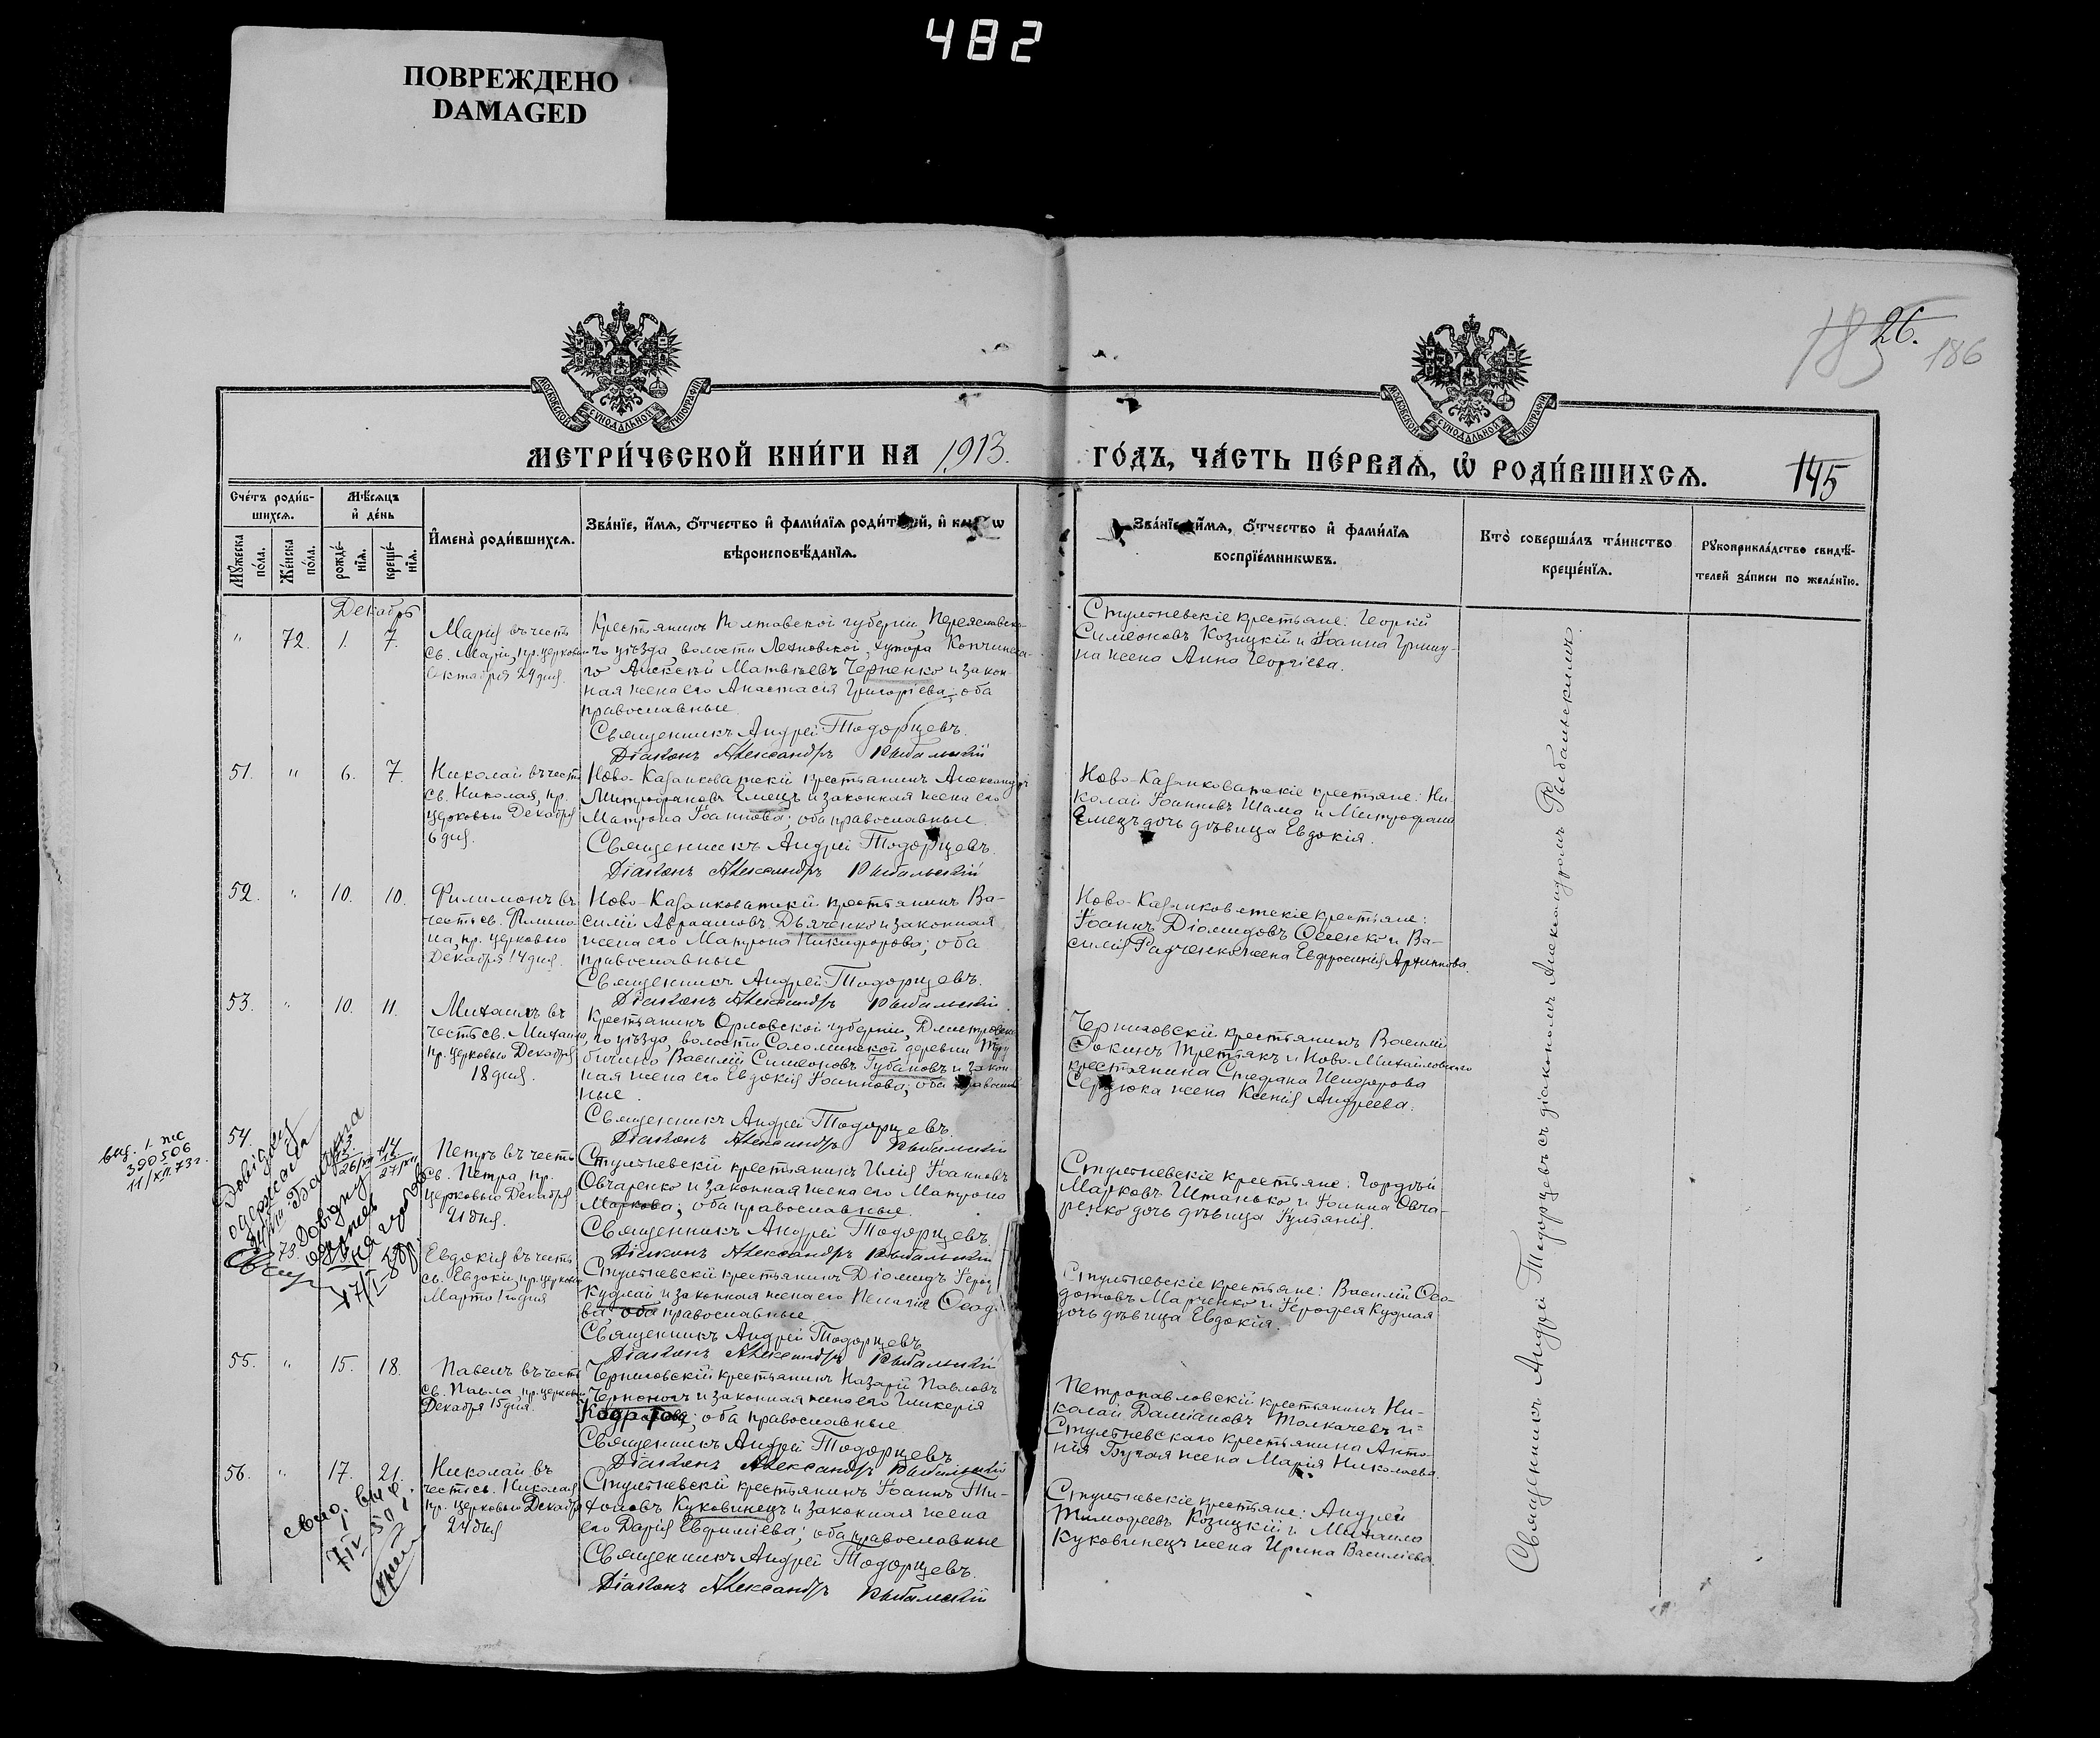 482
ПОВРЕЖДЕНО
DAMAGED
26.
185
186
МОСКОВСКОЙ СѴНОДАЛЬНОЙ ТИПОГРАФІИ
МОСКОВСКОЙ СѴНОДАЛЬНОЙ ТИПОГРАФІИ
МЕТРИ́ЧЕСКОЙ КНИ́ГИ НА 1913.
ГО́ДЪ, ЧА́СТЬ ПЕ́РВАѦ, Ѡ҆ РОДИ́ВШИХСѦ.
145
Сче́тъ роди́в-
шихсѧ.
Мѣ́сѧцъ
и҆ де́нь
Мꙋ́жеска по́ла.
Же́нска по́ла.
рожде́-
нїѧ.
креще́-
нїѧ.
И҆мена̀ роди́вшихсѧ.
Зва́нїе, и҆́мѧ, ѻ҆́тчество и҆ фами́лїѧ
вѣроисповѣ́данїѧ.
Зва́нїе, и҆́мѧ, ѻ҆́тчество и҆ фами́лїѧ
воспрїе́мникѡвъ.
Кто̀ соверша́лъ та́инство
креще́нїѧ.
Рꙋкоприкла́дство свидѣ́-
телей за́писи по жела́нїю.
Декабрь
" 72. 1. 7.
Марія въ честь
св. Маріи, пр. церковью
Октября 29 дня.
Крестьянинъ Полтавской губерніи, Переяславска-
го уѣзда, волости хутора
го Алексѣй Матвѣевъ Черненко и закон-
ная жена его Анастасія Григоріева; оба
православные.
Священникъ Андрей Тодорцевъ.
Діаконъ Александръ Рыбальскій
Стултневскіе крестьяне: Георгій
Симеоновъ Козицкій и Іоанна
на жена Анна Георгіева.
51. " 6. 7.
Николай въ честь
св. Николая, пр.
церковью Декабря
6 дня.
Ново-Казанковатскій крестьянинъ Александръ
Митрофановъ Емецъ и законная жена его
Матрона Іоаннова; оба православные.
Священникъ Андрей Тодорцевъ.
Діаконъ Александръ Рыбальскій
Ново-Казанковатскіе крестьяне: Ни-
колай Іоанновъ Шама и Митрофана
Емецъ дочь дѣвица Евдокія.
52. " 10. 10.
Филимонъ въ
честь св. Филимо-
на, пр. церковью
Декабря 14 дня.
Ново-Казанковатскій крестьянинъ Ва-
силій Авраамовъ Дьяченко и законная
жена его Матрона Никифорова; оба
православные
Священникъ Андрей Тодорцевъ.
Діаконъ Александръ Рыбальскій
Ново-Казанковатскіе крестьяне:
Іоаннъ Діомидовъ Осенко и Ва-
силія Радченко жена Евфросинія Архиппова.
53. " 10. 11.
Михаилъ въ
честь св. Михаила,
пр. церковью Декабря
18 дня.
Крестьянинъ Орловской губерніи, Дмитровска-
го уѣзда, волости Соломинской, деревни Тру-
бичино, Василій Симеоновъ Губановъ и закон-
ная жена его Евдокія Іоаннова; оба православ-
ные.
Священникъ Андрей Тодорцевъ
Діаконъ Александръ Рыбальскій
Черниговскій крестьянинъ Василій
Фокинъ Третьякъ и Ново-Михайловскаго
крестьянина Стефана
Сердюка жена Ксенія Андреева.
54.
Петръ въ честь
св. Петра, пр.
церковью Декабря
21 дня.
Стултневскій крестьянинъ Илія Іоанновъ
Овчаренко и законная жена его Матрона
Маркова; оба православные.
Священникъ Андрей Тодорцевъ.
Діаконъ Александръ Рыбальскій
Стултневскіе крестьяне: Гордѣй
Марковъ Штанько и Іоанна Овча-
ренко дочь дѣвица Іуліанія.
вид.
390506
11/XII.73г.
Довідку
одержала
73. Довідку
17/I-50р.
Евдокія въ честь
св. Евдокіи, пр. церковью
Марта 1 дня
Стултневскій крестьянинъ Діомидъ
Кудлай и законная жена его Пелагія
ва; оба православные
Священникъ Андрей Тодорцевъ.
Діаконъ Александръ Рыбальскій
Стултневскіе крестьяне: Василій Ѳео-
дотовъ Марченко и Іерофея Кудлая
дочь дѣвица Евдокія.
55. " 15. 18.
Павелъ въ честь
св. Павла, пр. церковью
Декабря 15 дня.
Черниговскій крестьянинъ Назарій Павловъ
и законная жена его Гликерія
Кодратова; оба православные.
Священникъ Андрей Тодорцевъ
Діаконъ Александръ Рыбальскій
Петропавловскій крестьянинъ Ни-
колай Даміановъ Толкачевъ и
Стултневскаго крестьянина Анто-
нія Бугая жена Марія Николаева.
56. " 17. 21.
Николай въ
честь св. Николая,
пр. церковью Декабря
24 дня
Стултневскій крестьянинъ Іоаннъ Ти-
хоновъ Куковинецъ и законная жена
его Дарія Евфиміева; оба православные
Священникъ Андрей Тодорцевъ.
Діаконъ Александръ Рыбальскій
Стултневскіе крестьяне: Андрей
Тимофеевъ Козицкій и Михаила
Куковинецъ жена Ирина Василіева.
7/IV 50
Священникъ Андрей Тодорцевъ съ діакономъ Александромъ Рыбальскимъ.